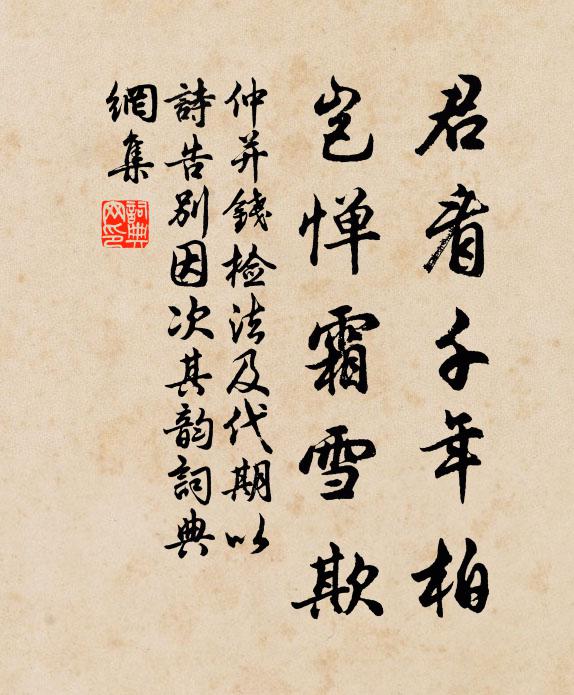 君看千年柏
岂惮霜雪欺
仲并錢检法及代期以
詩告别因次其韵詞典
網集
詞典
网印